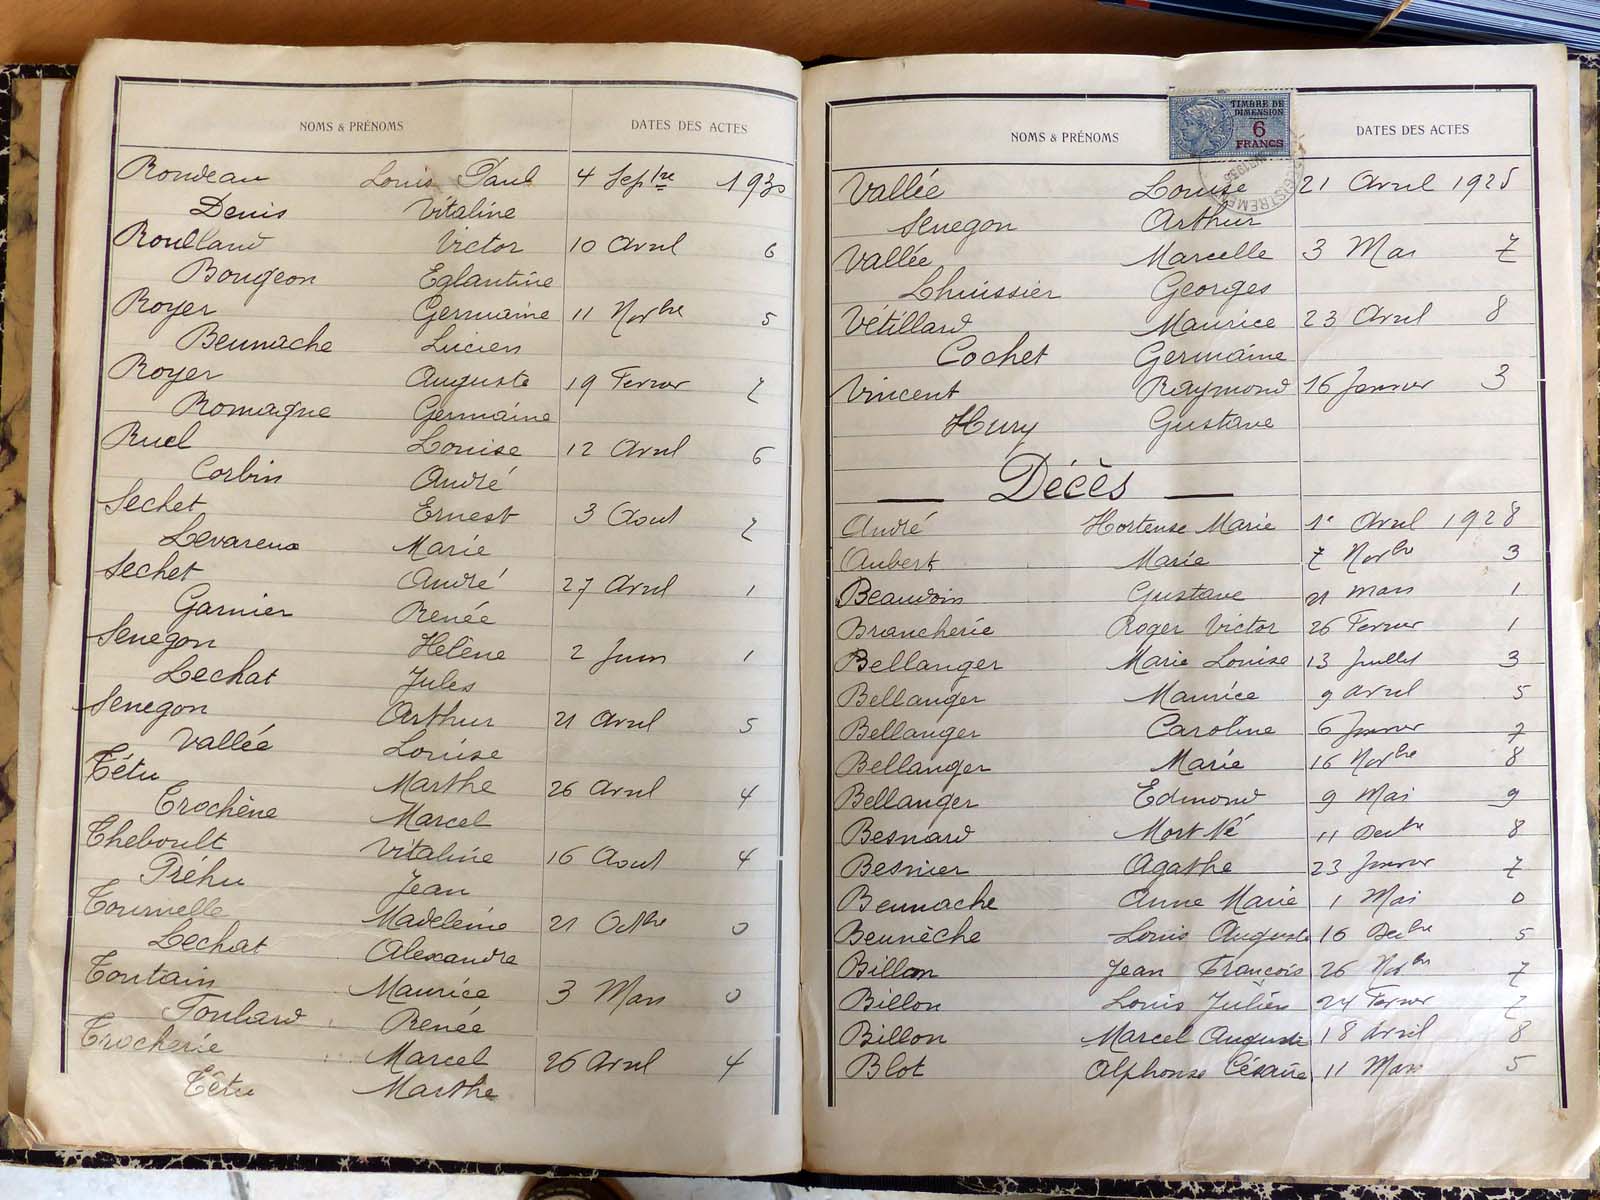 NOMS & PRÉNOMS DATES DES ACTES
Rondeau Louis Paul 4 Sepbre 1930
Denis Vitaline
Roulland Victor 10 Avril 6
Bougeon Eglantine
Royer Germaine 11 Novbre 5
Beunache Lucien
Royer Auguste 19 Fevrier 2
Romagne Germaine
Ruel Louise 12 Avril 6
Corbin André
Sechet Ernest 3 Aout 2
Levareux Marie
Sechet André 27 Avril 1
Garnier Renée
Senegon Hélène 2 Juin 1
Lechat Jules
Senegon Arthur 21 Avril 5
Vallée Louise
Têtu Marthe 26 Avril 4
Trochène Marcel
Theboult Vitaline 16 Aout 4
Préhu Jean
Tournelle Madeleine 21 Octbre 0
Lechat Alexandre
Toutain Maurice 3 Mars 0
Foulard Renée
Trocherie Marcel 26 Avril 4
Têtu Marthe
TIMBRE DE
DIMENSION
6
FRANCS
NOMS & PRÉNOMS DATES DES ACTES
Vallée Louise 21 Avril 1925
Senegon Arthur
Vallée Marcelle 3 Mai 7
Lhuissier Georges
Vétillard Maurice 23 Avril 8
Cochet Germaine
Vincent Raymond 16 Janvier 3
Hury Gustave
— Décès —
André Hortense Marie 1e Avril 1928
Aubert Marie 7 Novbre 3
Beaudoin Gustave 21 Mars 1
Brancherie Roger Victor 26 Fevrier 1
Bellanger Marie Louise 13 Juillet 3
Bellanger Maurice 9 Avril 5
Bellanger Caroline 6 Janvier 7
Bellanger Marie 16 Novbre 8
Bellanger Edmond 9 Mai 9
Besnard Mort Né 11 Decbre 8
Besnier Agathe 23 Janvier 7
Beunache Anne Marie 1 Mai 0
Beunèche Louis Auguste 16 Decbre 5
Billon Jean François 26 Novbre 7
Billon Louis Julien 24 Fevrier 2
Billon Marcel Auguste 18 Avril 8
Blot Alphonse Césaire 11 Mars 5